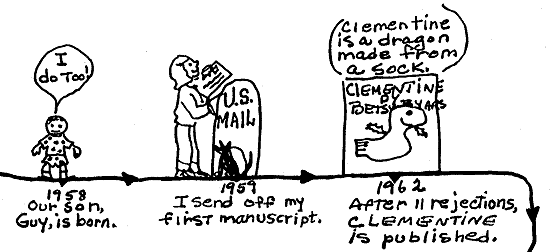 I
do Too!
1958
Our son,
Guy, is born.
U.S.
MAIL
1959
I send off my
first manuscript.
Clementine
is a dragon
made from
a sock.
CLEMENTINE
BETSY BYARS
1962
After 11 rejections,
CLEMENTINE
is published.